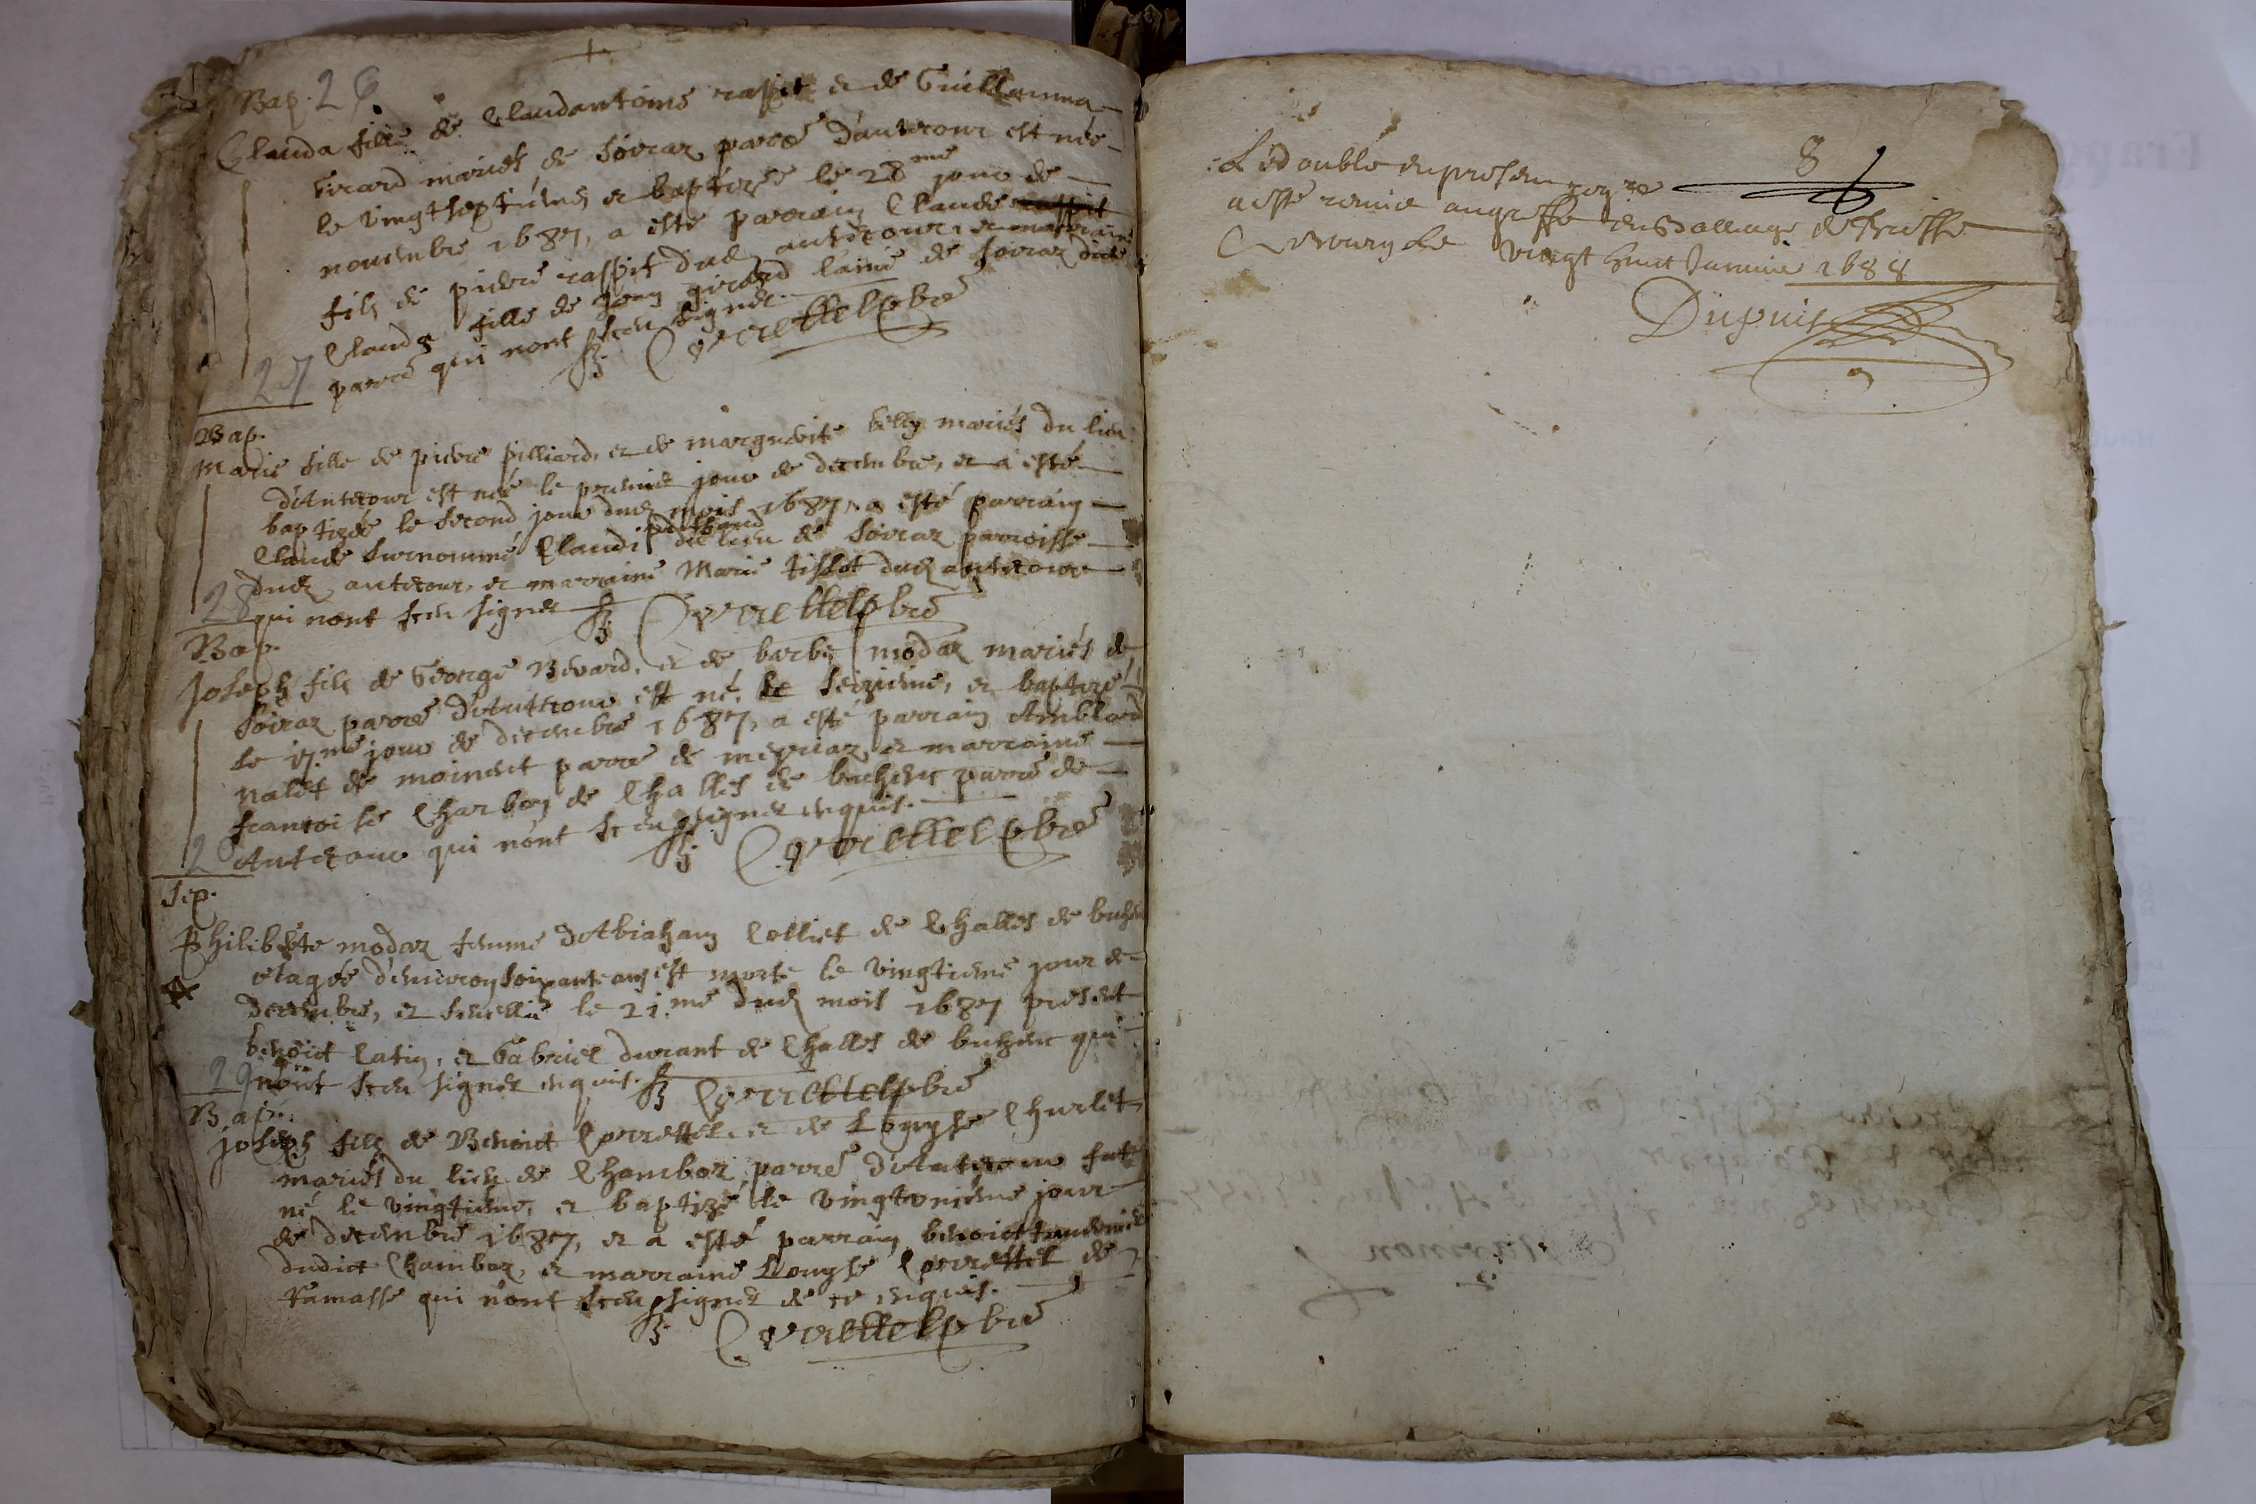 Bap. 26
Clauda fille de Claudantoine raffit et de Guillauma
Girard mariés de Soiraz parre d'antecour est née
le vingtseptieme et baptizée le 28me jour de
novembre 1687, a esté parrain Claude raffit
filz de pierre raffit dud antecour, et marraine
Clauda fille de Jean girard l'ainé de Soiraz dicte
parre qui n'ont sceu signer
Correttel pbre
27
Bap.
Marie fille de pierre pilliard, et de marguerite billy mariés du lieu
d'Antecour est née le premier jour de decembre, et a esté
baptizée le second jour dud mois 1687, a esté parrain
Claude surnommé Claudi du lieu de Soiraz parroisse
dud antecour, et marraine Marie tissot dud antecour
28 qui n'ont sceu signer Correttel pbre
Bap.
Joseph filz de George Bevard, et de barbe modaz mariés de
Soiraz parre d'Antecour est né le seizieme, et baptizé
le 17.me jour de decembre 1687, a esté parrain Amblard
nalet de moinet parre de meyriaz et marraine
francoise Charbon de Challes de buhenc parre de
Antecour qui n'ont sceu signer enquis.
Correttel pbre
2
Sep.
Philiberte modaz femme d'Abraham Colliet de Challes de buhen
et agée d'environ soixante ans est morte le vingtieme jour de
decembre, et sevelie le 21.me dud mois 1687 present
benoict Catin, et Gabriel durant de Challes de buhenc qui
29 n'ont sceu signer enquis. Correttel pbre
Bap.
joseph filz de Benoict Correttel, et de Louyse Churlet
mariés du lieu de Chamboz parre d'Antecour fut
né le vingtieme, et baptizé le vingtunieme jour
de decembre 1687, et a esté parrain benoict
dudict Chamboz, et marraine Louyse Correttel de
Ramasse qui n'ont sceu signer de ce enquis.
Correttel pbre
8
Le double du present regre
a esté remis au greffe du Balliage de Bresse
a Bourg le vingt huict Janvier 1688
Dupuis